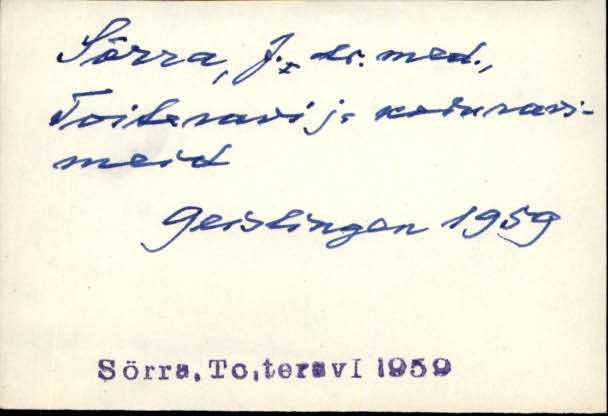 Sõrra, J., dr. med.,
Toiteravi ja koduravi-
meid
Geislingen 1959
Sörra, Toiteravi 1959